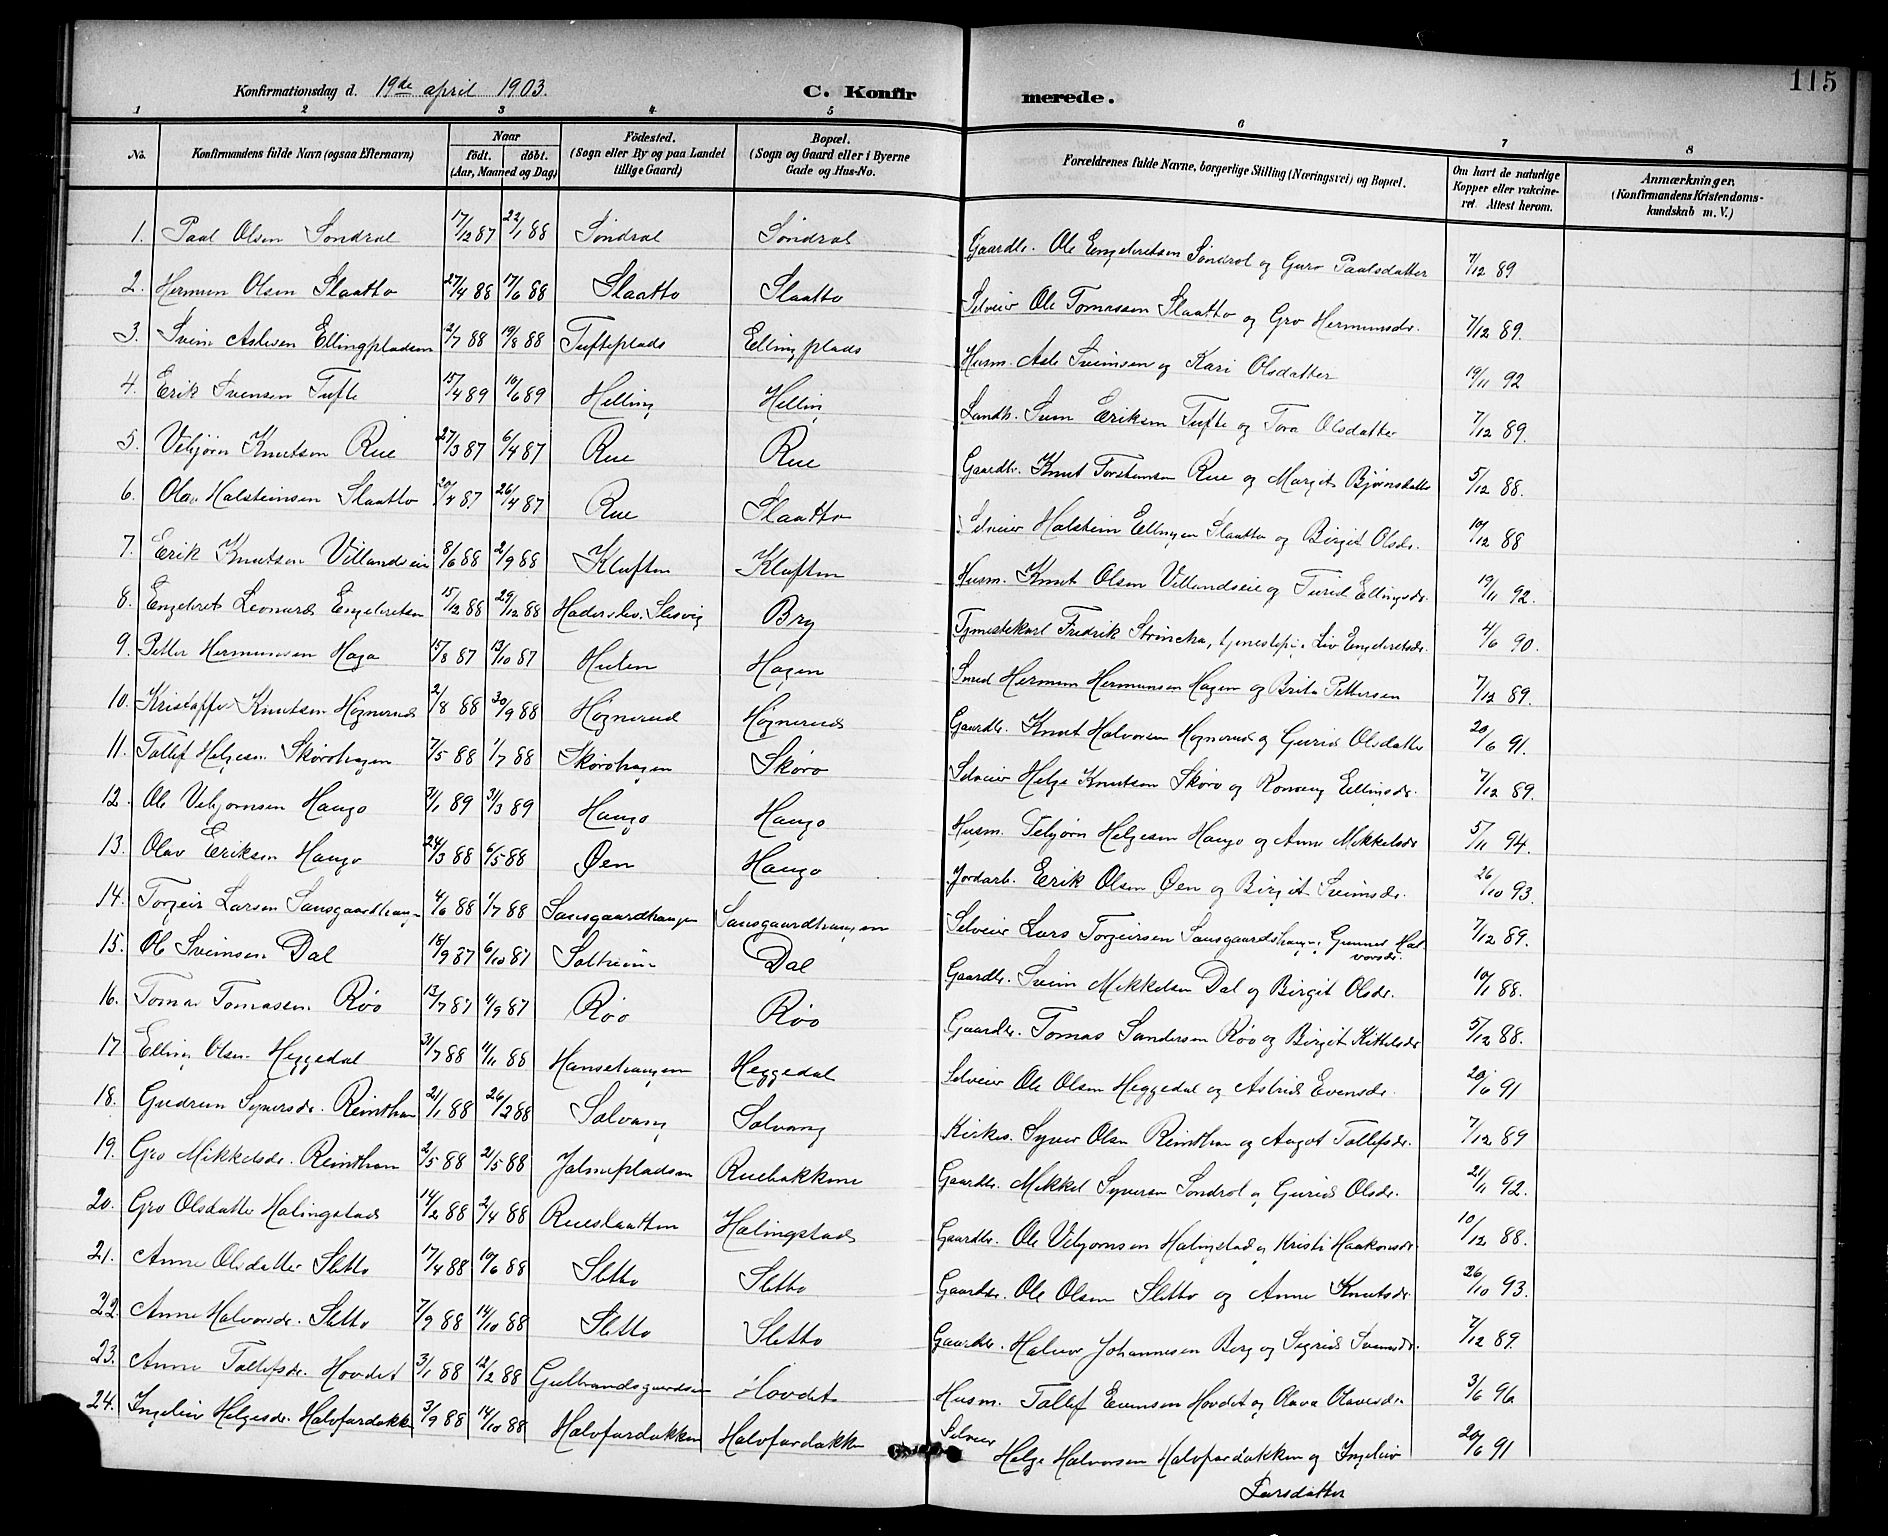 115
Konfirmationsdag d. 19de april 1903. C. Konfirmerede.
1 2 3 4 5 6 7 8
No. Konfirmandens fulde Navn (ogsaa Efternavn) Naar født. døbt. (Aar, Maaned og Dag) Fødested. (Sogn eller By og paa Landet tillige Gaard) Bopæl. (Sogn og Gaard eller i Byerne Gade og Hus-No. Forældrenes fulde Navne, borgerlige Stilling (Næringsvei) og Bopæl. Om havt de naturlige Kopper eller vakcineret. Attest herom. Anmærkninger. (Konfirmandens Kristendomskundskab m. V.)
1. Paal Olsen Søndrol 17/12 87 22/1 88 Søndrol Søndrol Gaardbr. Ole Engebretsen Søndrol og Guro Paalsdatter 7/12 89
2. Hermun Olsen Slaatto 27/4 88 17/6 88 Slaatto Slaatto Selveier Ole Tomassen Slaatto og Gro Hermunsdr. 7/12 89.
3. Svein Aslesen Ellingpladsen 2/7 88 19/8 88 Tufteplads Ellingplads Husm. Asle Sveinsen og Kari Olsdatter 19/11 92
4. Erik Svensen Tufte 15/4 89 10/6 89 Helling Helling Landh. Svein Eriksen Tufte og Tora Olsdatter 7/12 89.
5. Vebjørn Knutsen Rue 27/3 87 6/4 87 Rue Rue Gaardbr. Knut Torstensen Rue og Margit Bjørnsdatter 5/12 88.
6. Olav Halsteinsen Slaatto 20/4 87 26/4 87 Rue Slaatto Selveier Halstein Ellingsen Slaatto og Birgit Olsdr. 10/12 88
7. Erik Knutsen Villandseie 8/6 88 2/9 88 Kluften Kluften Husm. Knut Olsen Villandseie og Turid Ellingsdr. 19/11 92.
8. Engebret Leonard Engebretsen 15/12 88 29/12 88 Haderslev. Slesvig Bry Tjenestekarl Fredrik, tjenestepi. Liv Engebretsdr. 4/6 90.
9. Petter Hermunsen Haga 15/8 87 13/10 87 Hulen Hagen Smed Hermun Hermunsen Hagen og Brita Pettersen 7/12 89.
10. Kristoffer Knutsen Høgnerud 2/8 88 30/9 88 Høgnerud Høgnerud Gaardbr. Knut Halvorsen Høgnerud og Gurid Olsdatter 20/6 91.
11. Tollef Helgesen Skørohagen 7/5 88 1/7 88 Skørohagen Skøro Selveier Helge Knutsen Skøro og Ronnaug Ellingsdr. 7/12 89.
12. Ole Vebjørnsen Haugo 31/1 89 31/3 89 Haugo Haugo Husm. Vebjørn Helgesen Haugo og Anne Mikkelsdr 5/11 94.
13. Olav Eriksen Haugo 24/3 88 6/5 88 Øen Haugo Jordarb. Erik Olsen Øen og Birgit Sveinsdr. 26/10 93.
14. Torgeir Larsen Sansgaardhaugen 4/6 88 1/7 88 Sansgaardhaugen Sansgaardhaugen Selveier Lars Torgeirsen Sansgaardshaug, Gunnor Halvorsdr. 7/12 89.
15. Ole Sveinsen Dal 18/9 87 6/10 87 Soltreim Dal Gaardbr. Svein Mikkelsen Dal og Birgit Olsdr. 10/1 88.
16. Tomas Tomassen Røo 13/7 87 4/9 87 Røo Røo Gaardbr. Tomas Sandersen Røo og Birgit Kittelsdr 5/12 88.
17. Elling Olsen Heggedal 31/7 88 4/11 88 Hansehaugen Heggedal Selveier Ole Olsen Heggedal og Astrid Evensdr. 20/6 91
18. Gudrun Syversdr. Reinthon 21/1 88 26/2 88 Solvang Solvang Kirkes. Syver Olsen Reinthon og Aagot Tollefsdr. 7/12 89
19. Gro Mikkelsdr. Reinthon 2/5 88 21/5 88 Jalmepladsen Ruebakkene Gaardbr. Mikkel Syversen Sondrol og Gurid Olsdr. 21/11 92.
20. Gro Olsdatter Halingstad 14/2 88 2/4 88 Rueslaatten Halingstad Gaardbr. Ole Vebjørnsen Halingstad og Kristi Haakonsdr 10/12 88.
21. Anne Olsdatter Sletto 17/4 88 10/6 88 Sletto Sletto Gaardbr. Ole Olsen Sletto og Anne Knutsdr. 26/10 93.
22. Anne Halvorsdr. Sletto 7/9 88 14/10 88 Sletto Sletto Gaardbr. Halvor Johannesen Berg og Sigrid Sveinsdr. 7/12 89.
23. Anne Tollefsdr. Hovdet 3/1 88 12/2 88 Gulbrandsgaardseie Hovdet Husm. Tollef Evensen Hovdet og Olava Olavesdr 3/6 96
24. Ingeleiv Helgesdr. Halvfardokken 3/9 88 14/10 88 Halvfardokken Halvfardokken Selveier Helge Halvorsen Halvfardokken og Ingeleiv Larsdatter 20/6 91